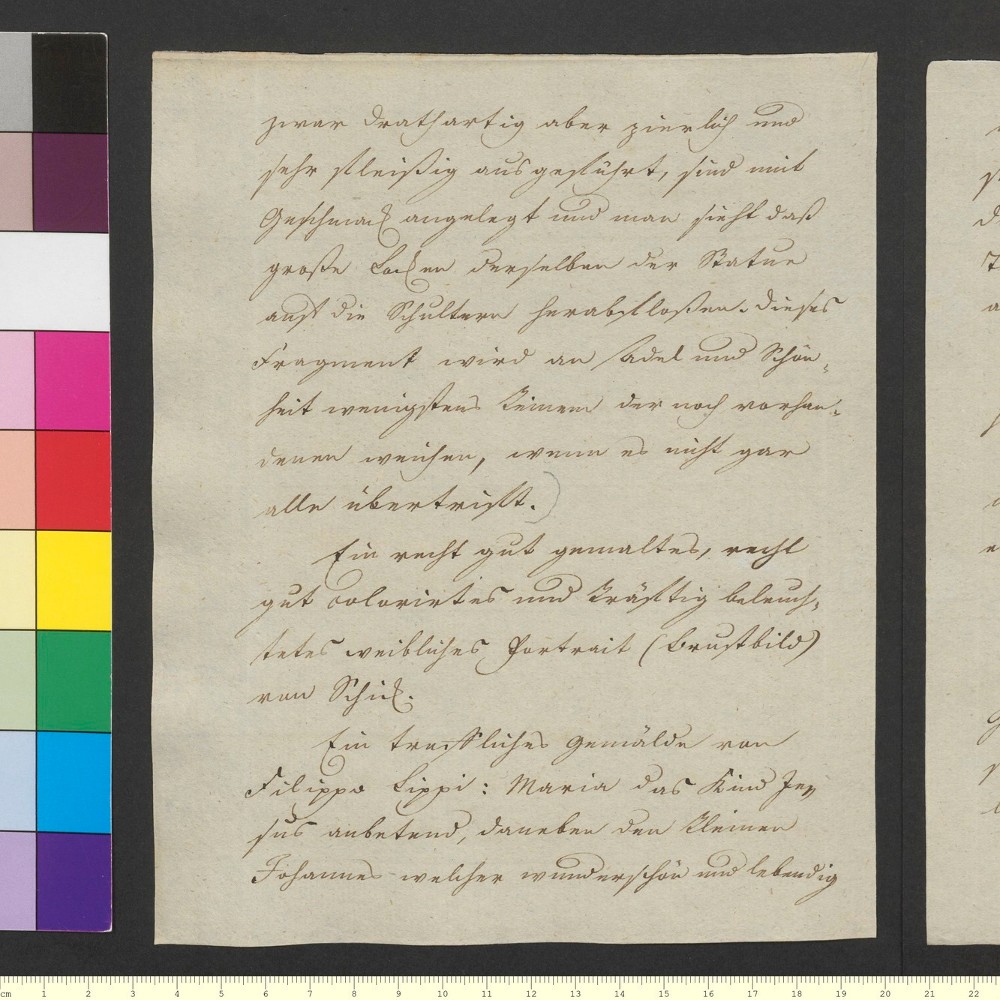 zwar drathartig aber zierlich und
sehr fleißig ausgeführt, sind mit
Geschmack angelegt und man sieht daß
große Locken derselben der Statue
auf die Schultern herabfloßen. dieses
Fragment wird an Adel und Schön-
heit wenigstens keinem der noch vorhan-
denen weichen, wenn es nicht gar
alle übertrifft.)
Ein recht gut gemaltes, recht
gut colorirtes und kräftig beleuch-
tetes weibliches Portrait (Brustbild)
von Schick.
Ein treffliches Gemälde von
Filippo Lippi: Maria das Kind Je-
sus anbetend, daneben den kleinen
Johannes welcher wunderschön und lebendig